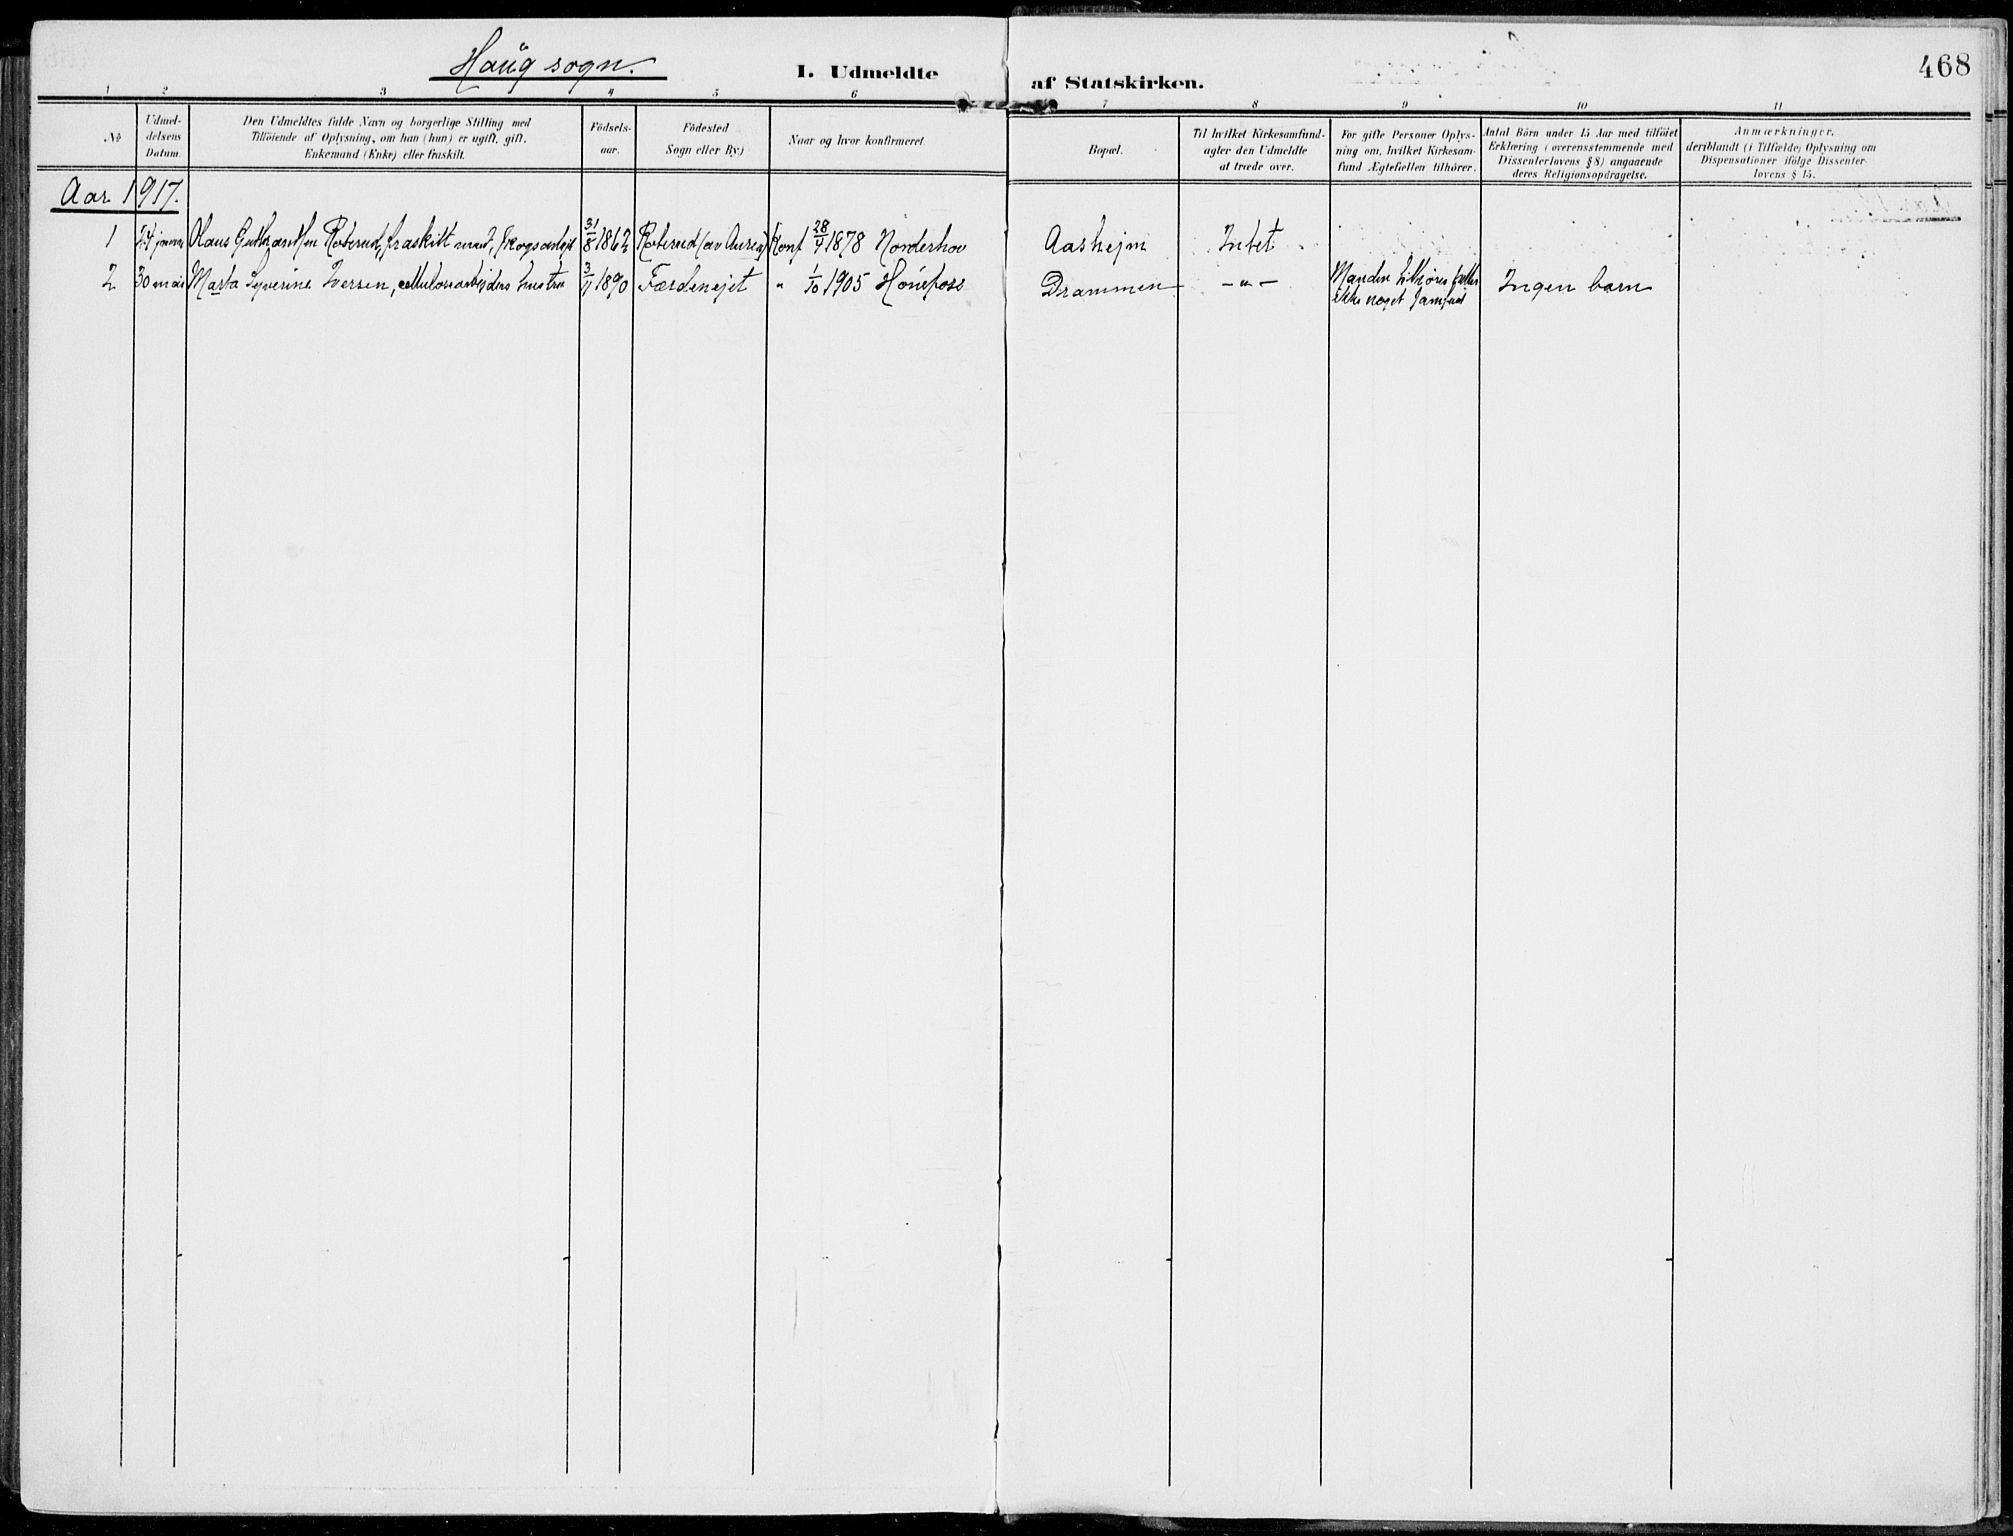 Haug sogn.
I. Udmeldte af Statskirken.
468
1 2 3 4 5 6 7 8 9 10 11
No
Udmel-
delsens
Datum.
Den Udmeldtes fulde Navn og borgerlige Stilling med
Tilföiende af Oplysning, om han (hun) er ugift, gift,
Enkemand (Enke) eller fraskilt.
Födsels-
aar.
Födested
Sogn eller By.)
Naar og hvor konfirmeret.
Bopæl.
Til hvilket Kirkesamfund-
agter den Udmeldte
at træde over.
For gifte Personer Oplys-
ning om, hvilket Kirkesam-
fund Ægtefællen tilhörer.
Antal Börn under 15 Aar med tilföiet
Erklæring (overensstemmende med
Dissenterlovens § 8) angaaende
deres Religionsopdragelse.
Anmærkninger,
deriblandt (i Tilfælde) Oplysning om
Dispensationer ifölge Dissenter-
lovens § 15.
Aar 1917.
1 24 januar Olaus Gulbrandsen Roterud, fraskilt mand, skogsarbejd 31/8 1862 Roterud (av Konf 28/4 1878 Norderhov Aashejm Intet
2 30 mai Marta Syverine Iversen, cellulosearbejders hustru 3/11 1890 Færdenejet " 1/10 1905 Hönefoss Drammen - " - Manden tilhörer heller Ingen barn
ikke noget samfund